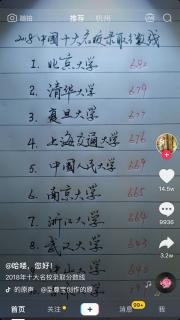 随拍
推荐
杭州
2018中国十大名校录取分数线
1. 北京大学 680
2. 清华大学 679
3. 复旦大学 677
4. 上海交通大学 676
5. 中国人民大学 669
6. 南京大学 665
7. 浙江大学 664
8. 武汉大学
14.5w
9936
3.2w
@哈喽,您好!
2018年十大名校录取分数线
的原声
@至尊宝创作的原
首页
关注
消息
99+
我